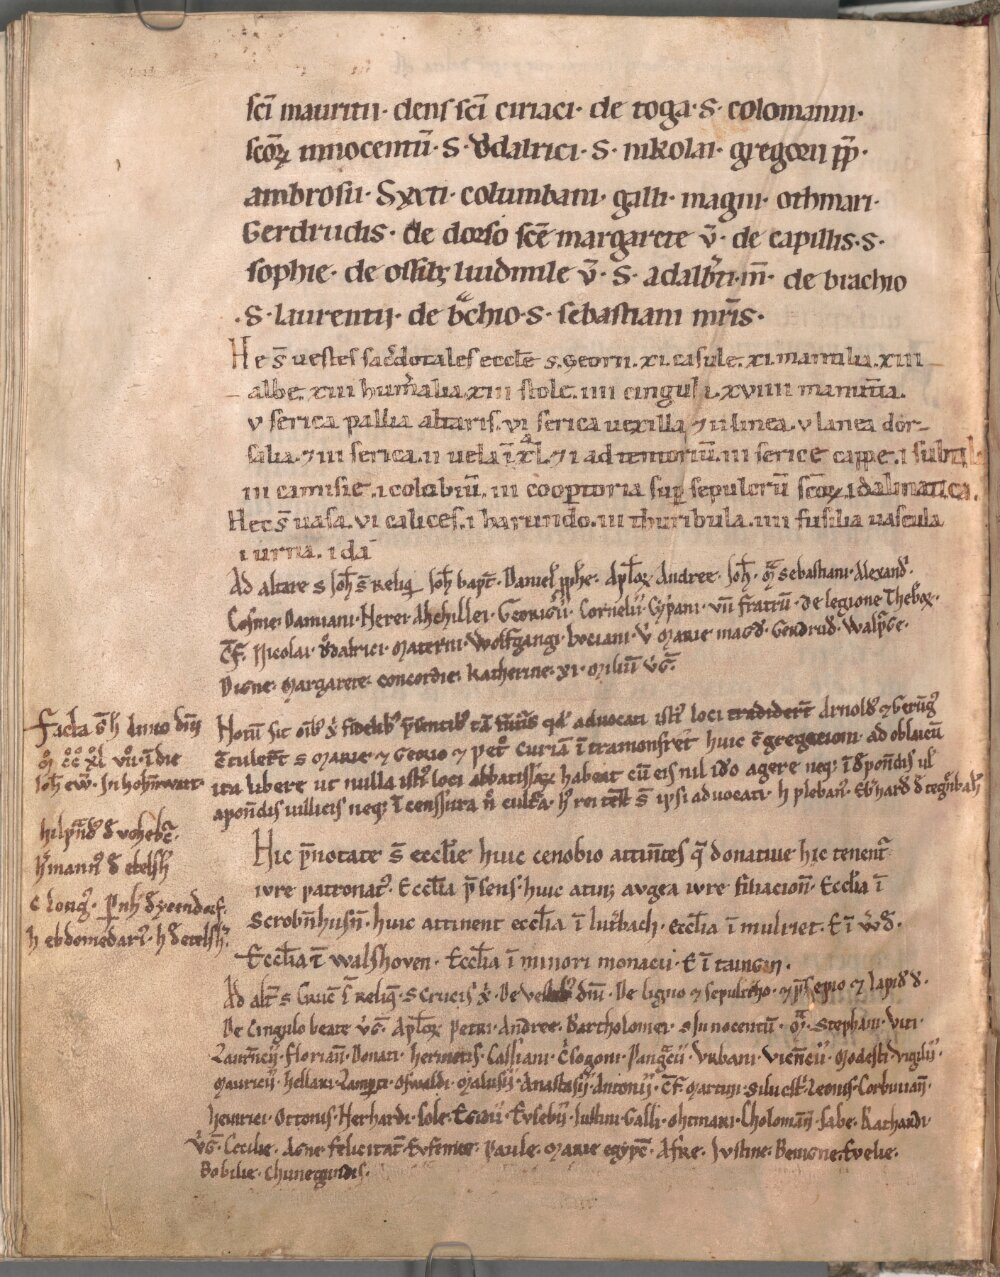 sc̄i mauritii· dens sc̄i ciriaci· de toga· S· colomanni·
scōꝝ innocentū· S· Vdalrici· S· nikolai· gregorii pp̄·
ambrosii· Syxti· columbani· galli· magni· othmari·
Gerdrudis· de dorso sc̄e margarete v̄· de capillis· s·
sophie· de ossibꝫ luidmile v̄· S· adalb̄ti· m̄· de brachio
·S· laurentii· de b̊chio· s· sebastiani mr̄is·
He s̄ uestes sac̄dotales eccl̄e s. Georii. xi. casule. xi. mantilia. xiii
albe. xiii hum̄alia. xiii stole. iiii cinguli. xviiii manut̄ia.
v serica pallia altaris. vi serica uexilla ⁊ ii linea. v lanea dor-
salia. ⁊ iii serica. ii uela ī xl̄. ⁊ i ad tentoriū. iii serice cappe. i subtil
iii camisie. i colobiū. iii cooptoria sup̄ sepulcrū scōꝝ. i dalmatica.
Hec s̄ uasa. vi calices. i harundo. iii thuribula. iiii fusilia uascula
i urna. i da
Ad altare s Joh̄ s̄ Reliq̄ Joh̄ bapt̄· Daniel pphe· Apl̄oꝝ Andree· Joh̄· m̄ Sebastiani· Alexand̄·
Cosme· Damiani· Nerei· Achillei· Georgii· Cornelii· Cypani· vii fratrū· de legione Thebeoꝝ·
C̄f· Nicolai· v̊dalrici· Materni· Wolfgangi· Luciani· v̄ Marie magd̄· Gerdrud̄· Walp̄ge·
Digne· Margarete· concordie· katherine· xi· miliū v̄g̅·
Facta s̄ h̄ Anno dn̄i
m̊ c̊c̊ xl̊ vii· ī die
Joh̄ ew̄· In hohn̄wart
Notū sit oīb' x̄ fidelib' p̄sentib' tā futuris qd' aduocati isti' loci tradider̄t Arnold' ⁊ Gerūg'
ꝯtuler̄t s Marie ⁊ Georio ⁊ petro Curiam ī tramonsret huic ꝯgregationi· ad oblaicū
ita libere ut nulla isti' loci abbatissaꝝ habeat cū eis nil ido agere neqꝫ
hilp̄nd' d̄ vohebc̄·
h̄mann' d̄ etelsh̄
Hic p̄notate s̄ eccl̄ie huic cenobio attin̄tes q̄ donatiue hic tenent᷑
iure patronat'· Eccl̄ia p̄sens· huic atin₃ augea iure filiacion̄· Eccl̄ia ī
Scrobn̄husn̄· huic attinent eccl̄ia ī lut̄bach· eccl̄ia ī mulriet· E ī
Eccl̄ia ī walshoven· Eccl̄ia ī minori monacu· E ī taingin·
Ad alt̄ s Cruc̄ s̄ reliq̄· s Crucis x̄· De dn̄i· De ligno ⁊ sepulchro· ⁊ p̄sepio ⁊ lapid̄
De Cingulo beate v̄g̅· Apl̄oꝝ Petri· Andree· Bartholomei· s Innocentū· m̄· Stephani· viti·
Laurēcij· Floriani· Donati· hermetis· Cassiani· C̄sogoni· Pangcii· Vrbani· Vicēcij· Modesti· Vigilij·
Mauricij· hellari· Lamperti· Oswaldi· Anastasij· Antonij· C̄f· Martini· Siluestr̄· Leonis· Corbinian̄·
heinrici· Ottonis· Herhardi· Egidij· Eusebij· Iustini· Galli· Othmari· Cholomāni· Kathardi·
v̄g̅· Cecilie· Agne· felicitat̄· Eufemie· Paule· Marie egypc̄· Afre· Iustine· Benigne· Evelie·
Bobilie· Chunegundis·